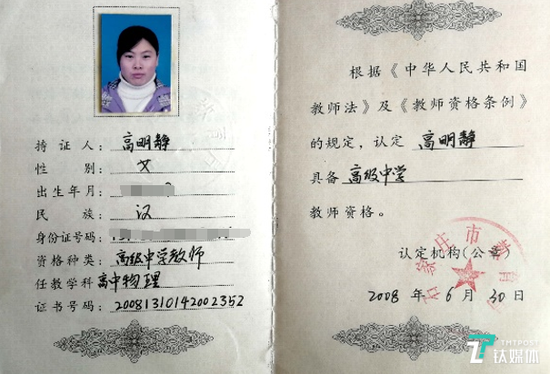 持证人: 高明静
性别: 女
出生年月:
民族: 汉
身份证号码:
资格种类: 高级中学教师
任教学科 高中物理
证书号码: 20081310142002352
根据《中华人民共和国
教师法》及《教师资格条例》
的规定,认定 高明静
具备 高级中学
教师资格。
认定机构(公章)
2008 年 6 月 30 日
TMTPOST
钛媒体